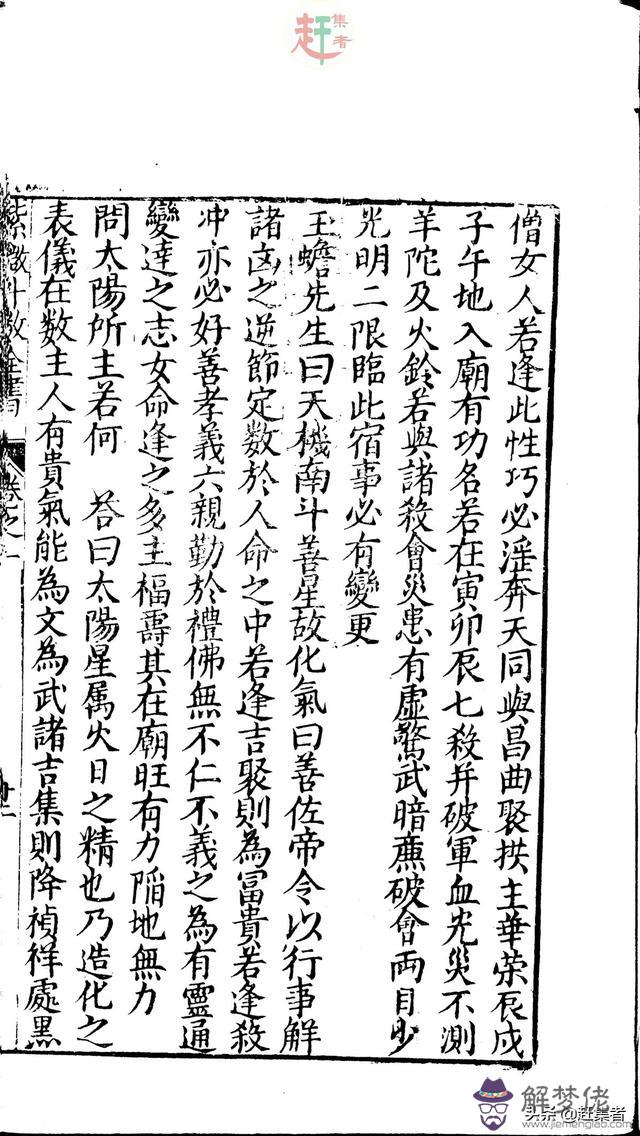 赶集者
僧女人若逢此性巧必淫奔天同與昌曲聚拱主華荣辰戍
子午地入廟有功名若在寅卯辰七殺并破軍血光災不測
羊陀及火鈴若與諸殺會災患有虛驚武暗亷破會両目少
光明二限臨此宿事必有變更
玉蟾先生曰天機南斗善星故化氣曰善佐帝令以行事解
諸凶之逆節定數於人命之中若逢吉聚則為冨貴若逢殺
冲亦必好善孝義六親勤於禮佛無不仁不義之為有靈通
變達之志女命逢之多主福壽其在廟旺有力陷地無力
問太陽所主若何　荅曰太陽星属火日之精也乃造化之
表儀在数主人有貴氣能為文為武諸吉集則降禎祥處黑
紫微斗数全書 卷之一 廿二
解梦佬
www.jiemenglao.com
头条 @赶集者